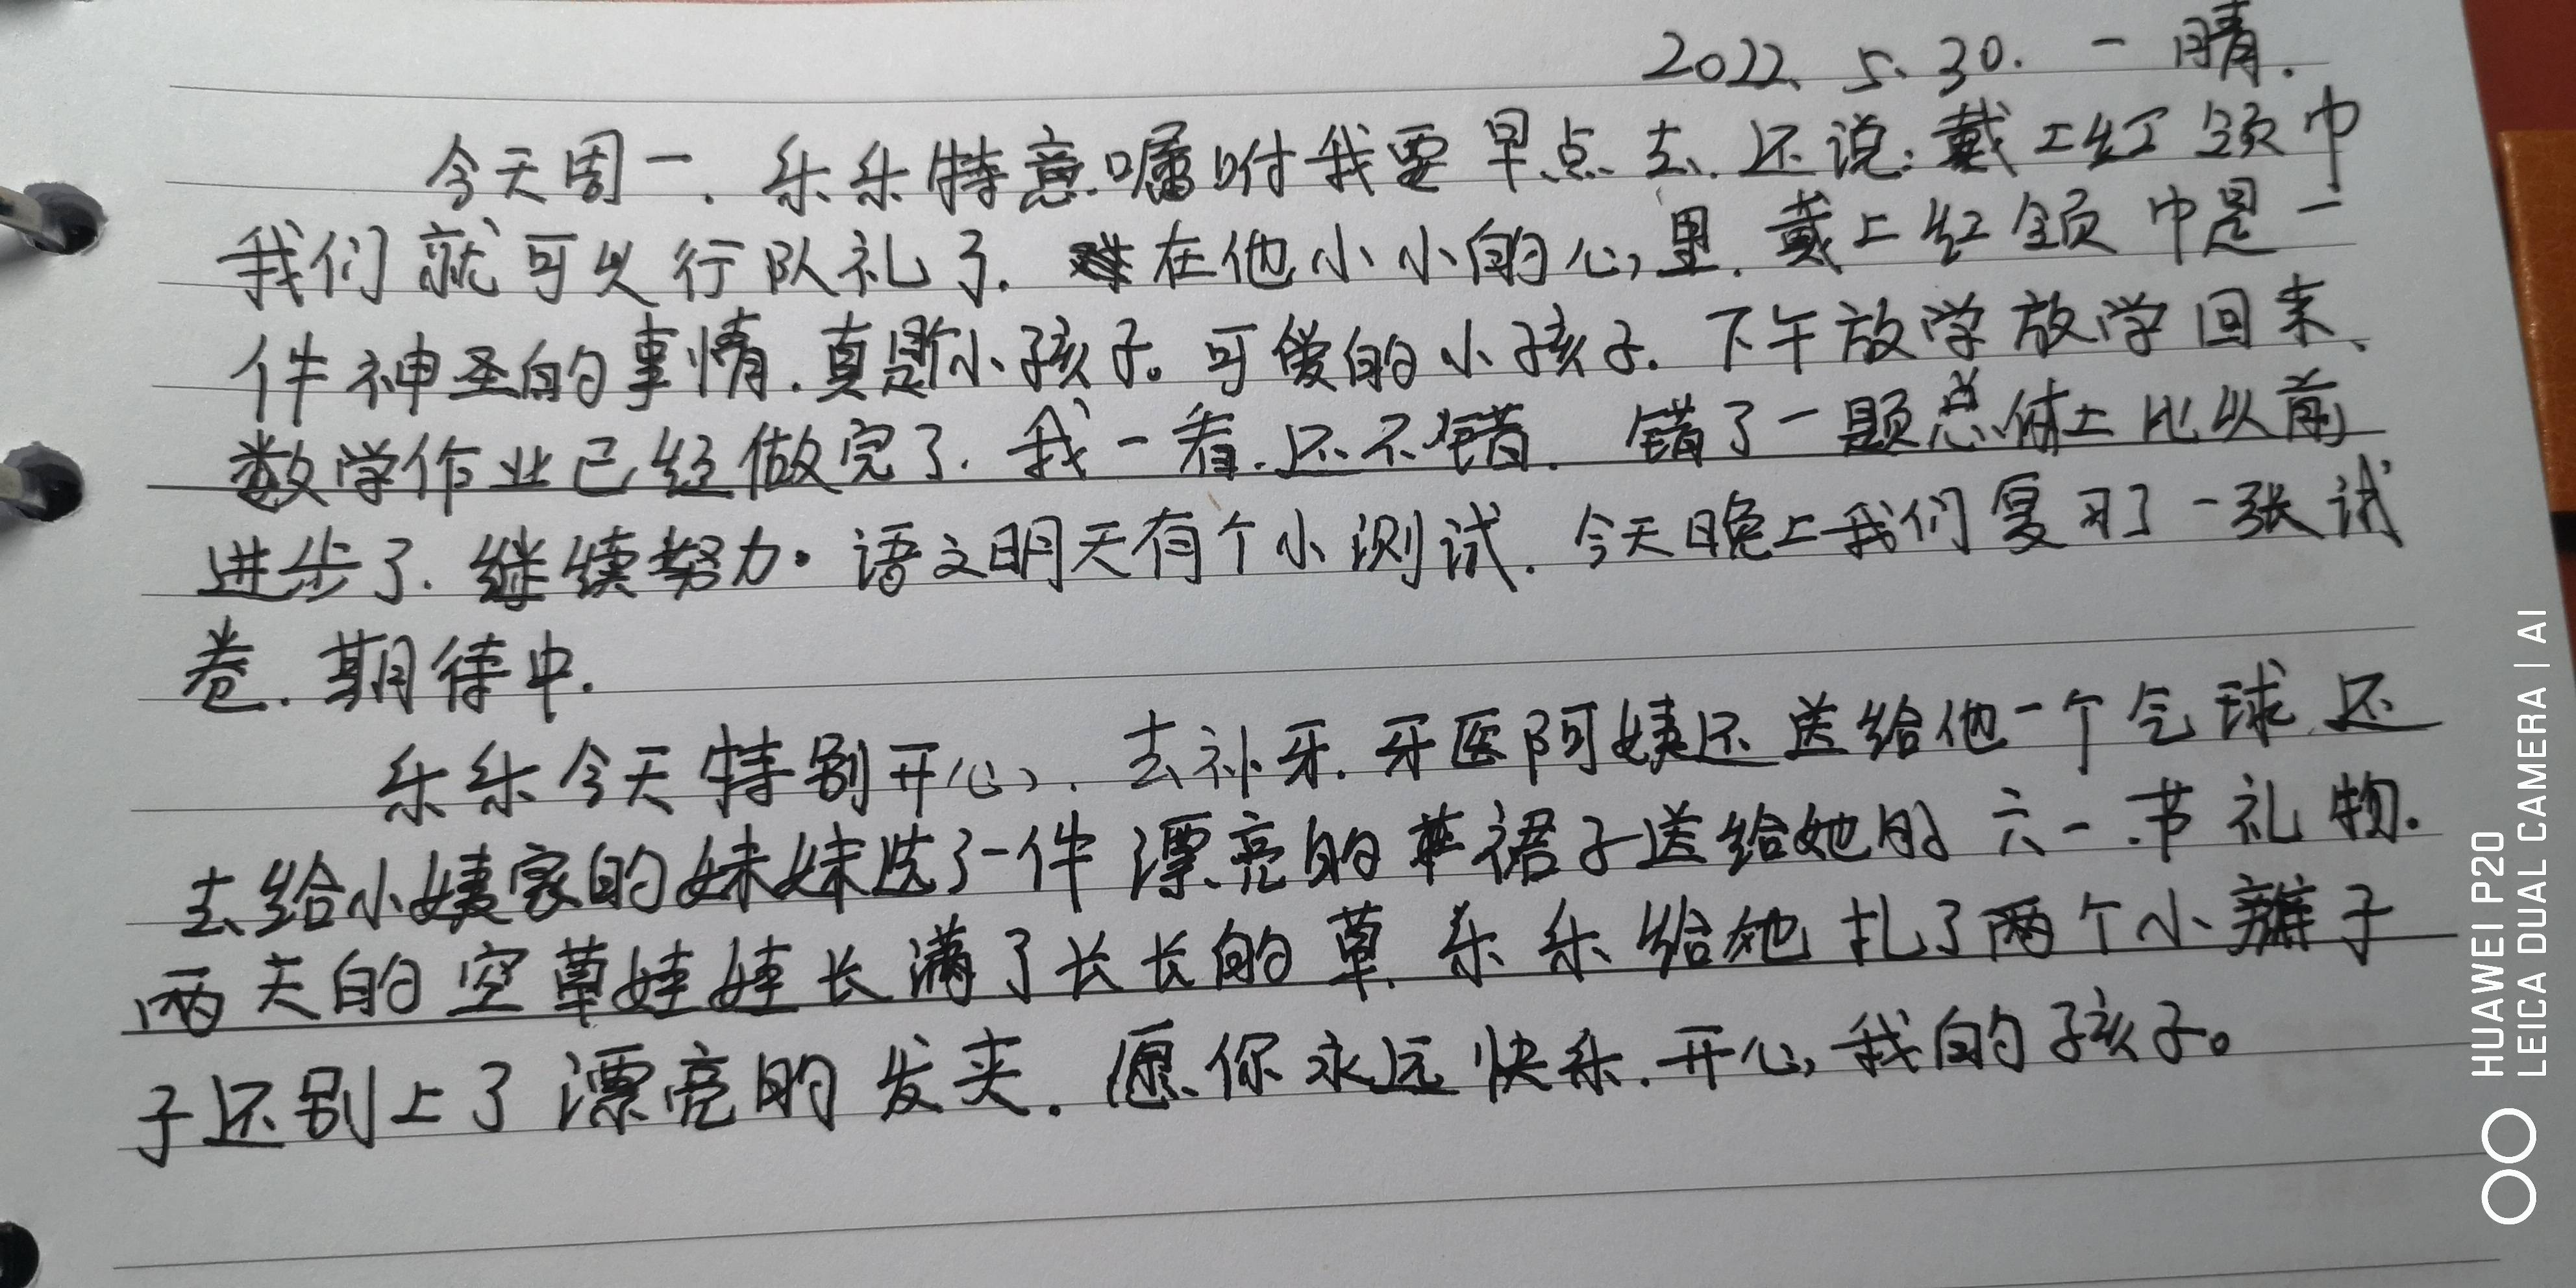 2022. 5. 30. 一 晴.
今天周一. 乐乐特意嘱咐我要早点去. 还说: 戴上红领巾
我们就可以行队礼了. 在他小小的心里. 戴上红领巾是一
件神圣的事情. 真是小孩子。可爱的小孩子. 下午放学放学回来、
数学作业已经做完了. 我一看. 还不错. 错了一题总体上比以前
进步了. 继续努力. 语文明天有个小测试. 今天晚上我们复习了一张试
卷. 期待中.
乐乐今天特别开心, 去补牙. 牙医阿姨还送给他一个气球. 还
去给小姨家的妹妹选了一件漂亮的裙子送给她的六一节礼物.
两天的空草娃娃长满了长长的草. 乐乐给她扎了两个小辫子
子还别上了漂亮的发夹. 愿你永远快乐. 开心, 我的孩子。
HUAWEI P20
LEICA DUAL CAMERA | AI